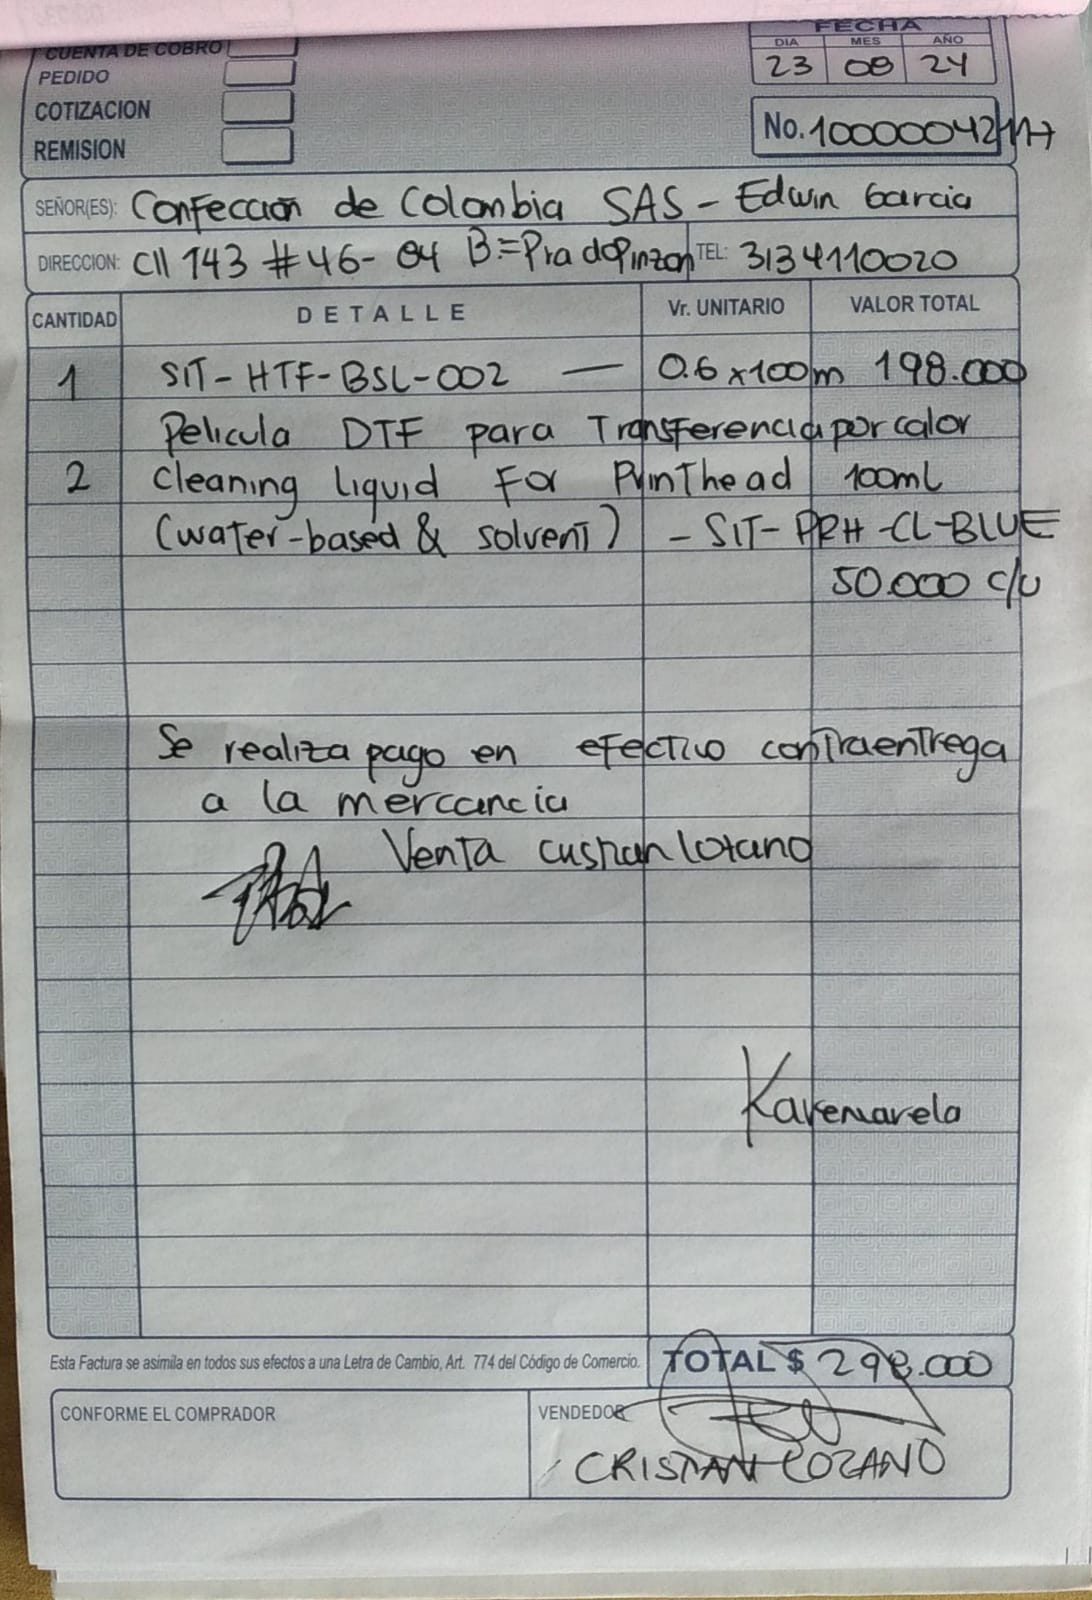 CUENTA DE COBRO
PEDIDO
COTIZACION
REMISION
FECHA
DIA MES AÑO
23 08 24
No. 10000042117
SEÑOR(ES): Confeccion de Colombia SAS - Edwin Garcia
DIRECCION: Cll 143 #46-04 B=Pradopinzon TEL: 3134110020
CANTIDAD DETALLE Vr. UNITARIO VALOR TOTAL
1 SIT-HTF-BSL-002 — 0.6x100m 198.000
Pelicula DTF para Transferencia por calor
2 Cleaning liquid For PrinThead 100ml
(water-based & solvent) - SIT-PRH-CL-BLUE
50.000 c/u
Se realiza pago en efectivo contraentrega
a la mercancia
Venta cristian lozano
TOTAL $ 298.000
Esta Factura se asimila en todos sus efectos a una Letra de Cambio, Art. 774 del Código de Comercio.
CONFORME EL COMPRADOR
VENDEDOR
CRISTIAN LOZANO